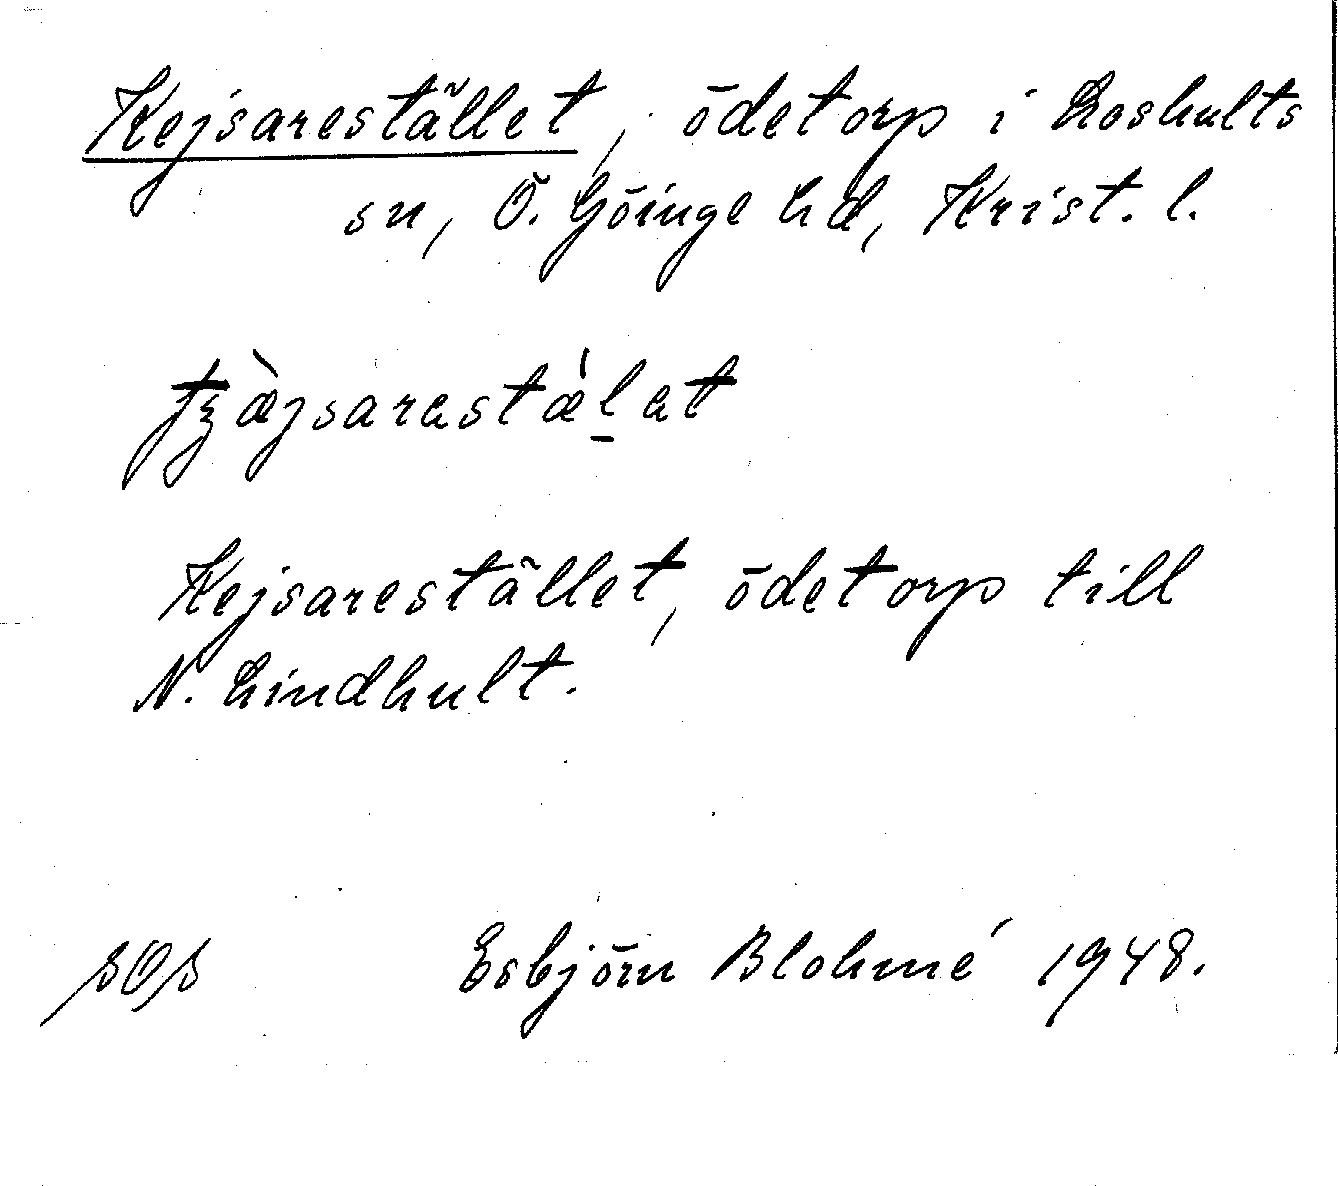 Kejsarestället, ödetorp i Loshults
sn, Ö. Göinge hd, Krist. l.
Kejsarestället, ödetorp till
N. Lindhult.
Esbjörn Blohmé 1948.